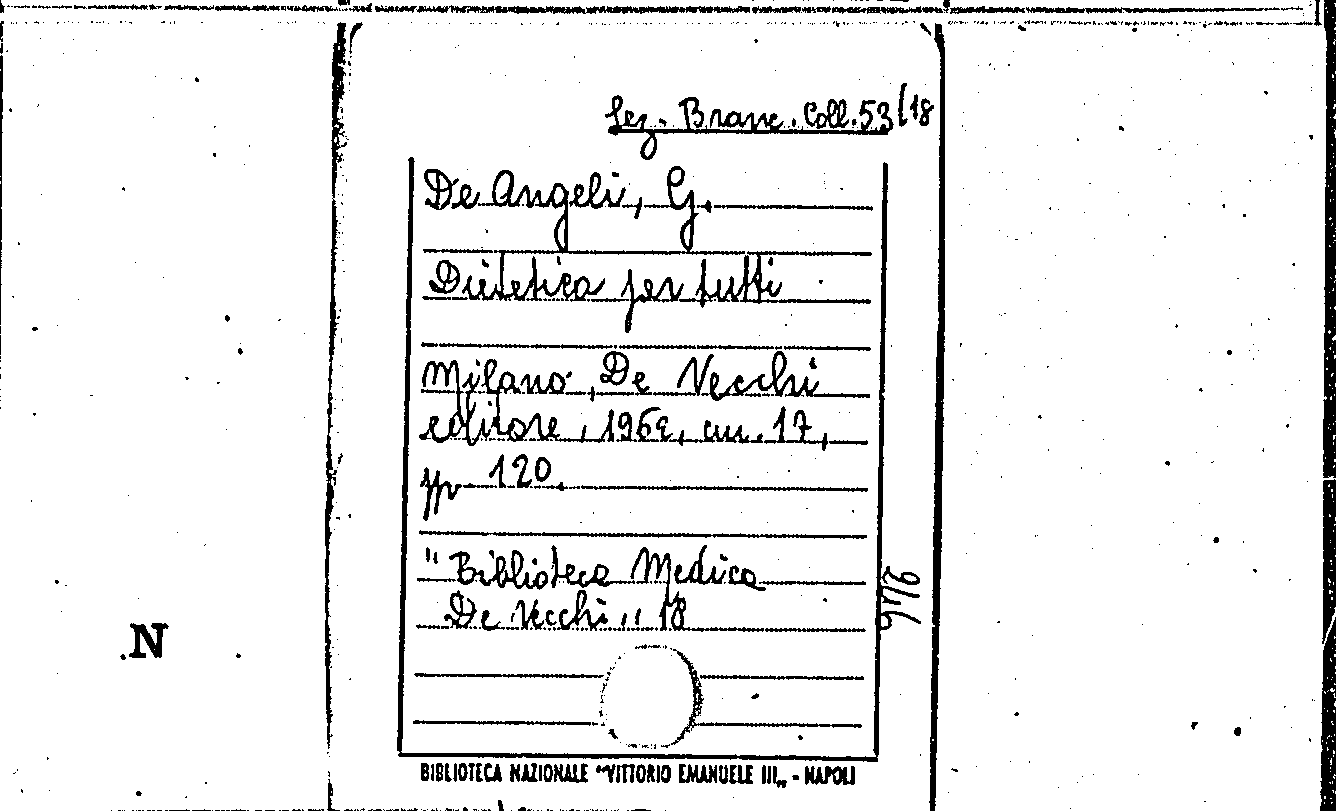 Sez. Branc. Coll. 53/18
De Angeli, G.
Dietetica per tutti
Milano, De Vecchi
editore, 1962, cm. 17,
pp. 120.
"Biblioteca Medica
De Vecchi" 18
N
BIBLIOTECA NAZIONALE "VITTORIO EMANUELE III„ - NAPOLI